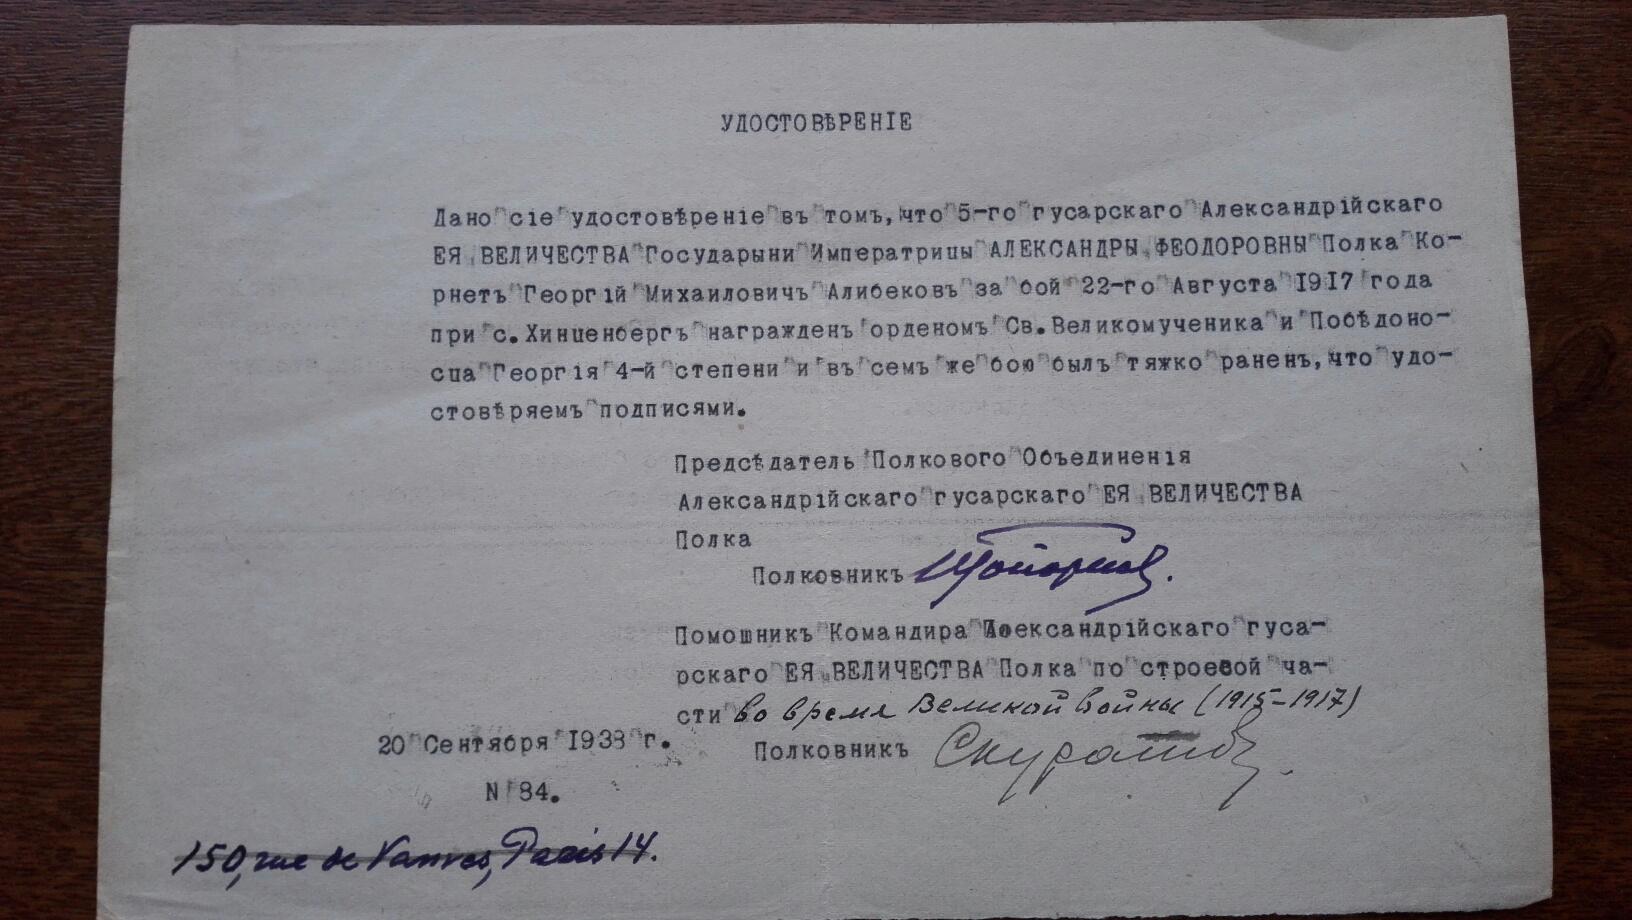 УДОСТОВѢРЕНІЕ
Дано сіе удостовѣреніе въ томъ, что 5-го гусарскаго Александрійскаго
ЕЯ ВЕЛИЧЕСТВА Государыни Императрицы АЛЕКСАНДРЫ ФЕОДОРОВНЫ Полка Ко-
рнетъ Георгій Михаиловичъ Алибековъ за бой 22-го Августа 1917 года
при с. Хинценбергъ награжденъ орденомъ Св. Великомученика и Побѣдоно-
сца Георгія 4-й степени и въ семъ же бою былъ тяжко раненъ, что удо-
стовѣряемъ подписями.
Предсѣдатель Полкового Объединенія
Александрійскаго гусарскаго ЕЯ ВЕЛИЧЕСТВА
Полка
Полковникъ
Помошникъ Командира Александрійскаго гуса-
рскаго ЕЯ ВЕЛИЧЕСТВА Полка по строевой ча-
сти во время Великой войны (1915-1917)
20 Сентября 1938 г.
Полковникъ
N 84.
150, rue de Vanves, Paris 14.